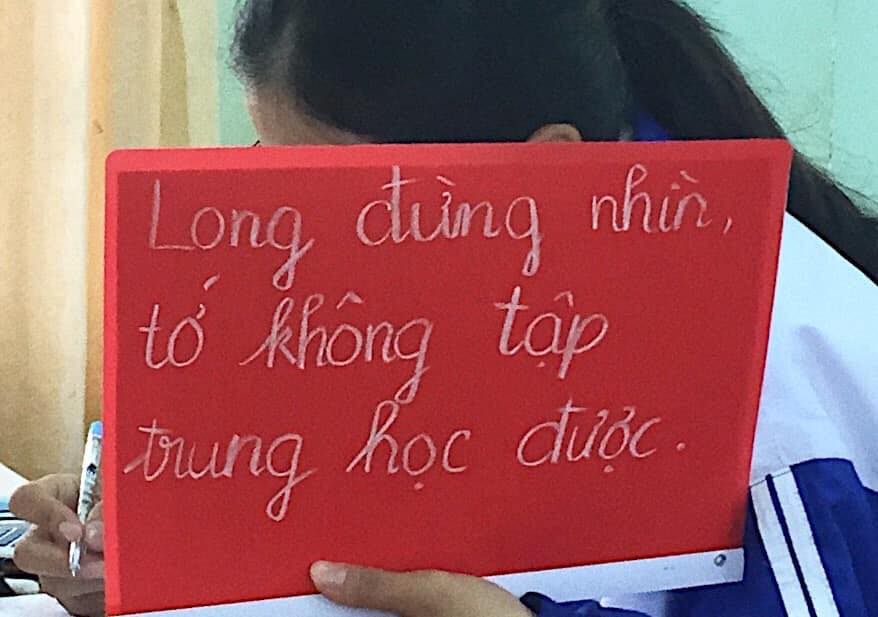 Long đừng nhìn,
tớ không tập
trung học được.